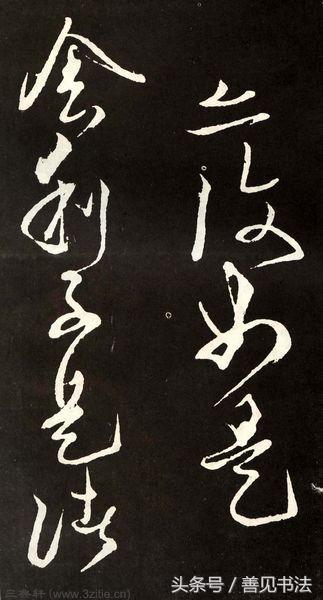 亦復如是
舍利子是諸
(www.3zitie.cn)
头条号 / 善见书法